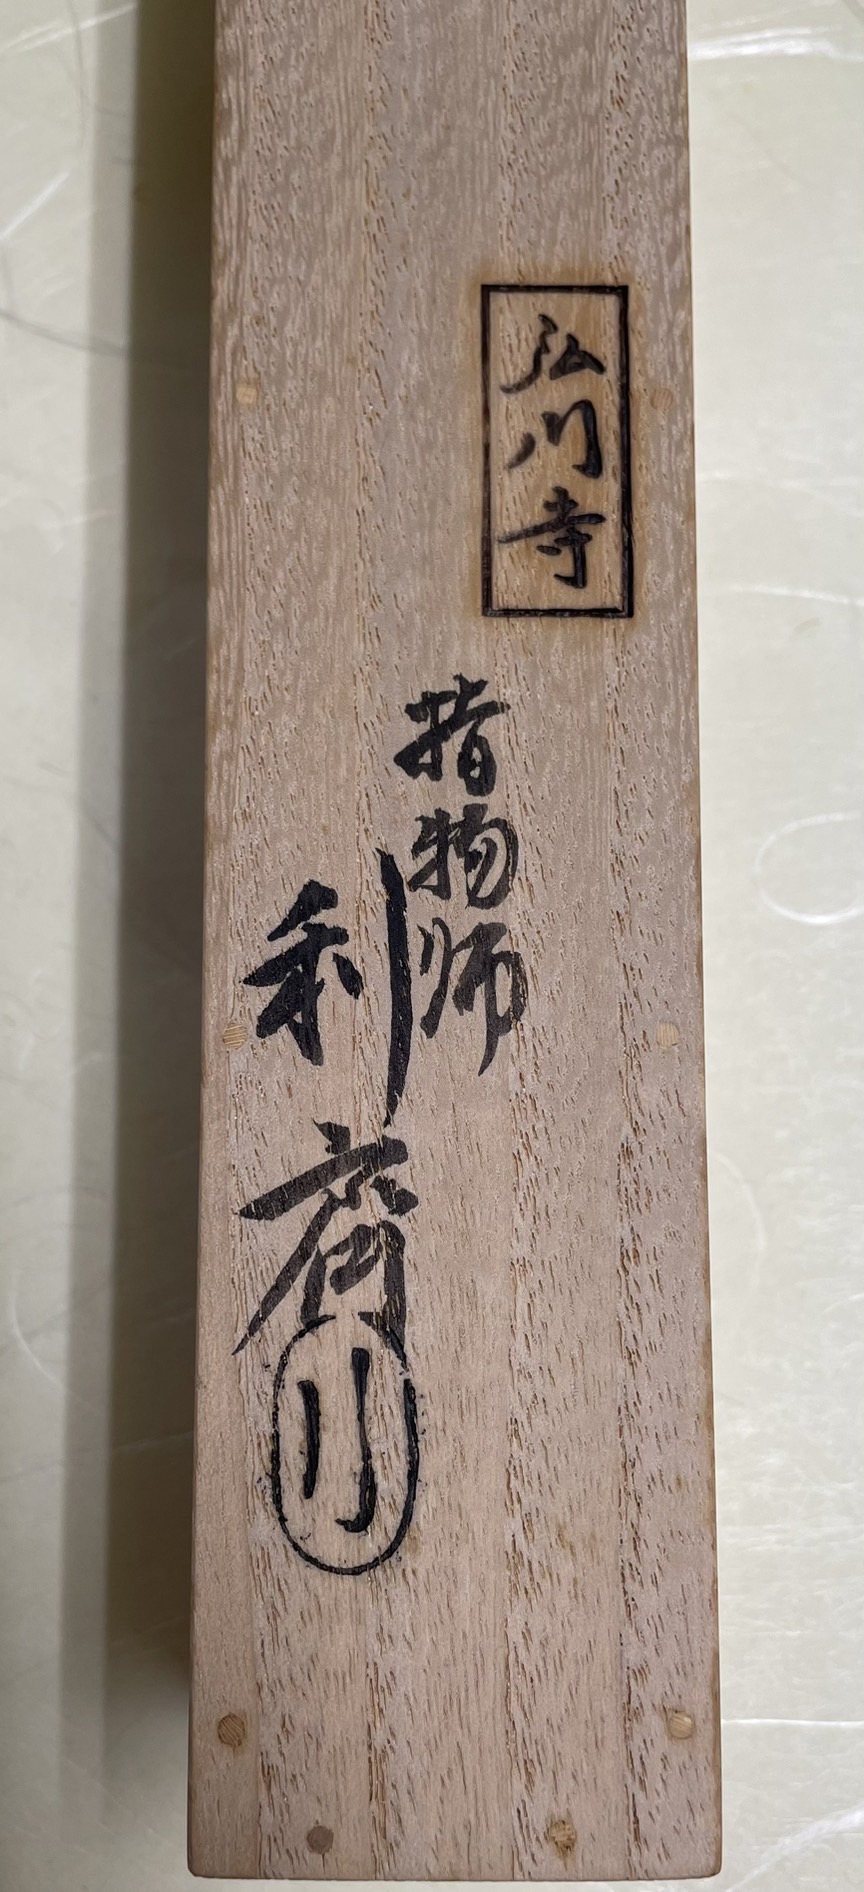 弘川寺
指物師
利斎
リ